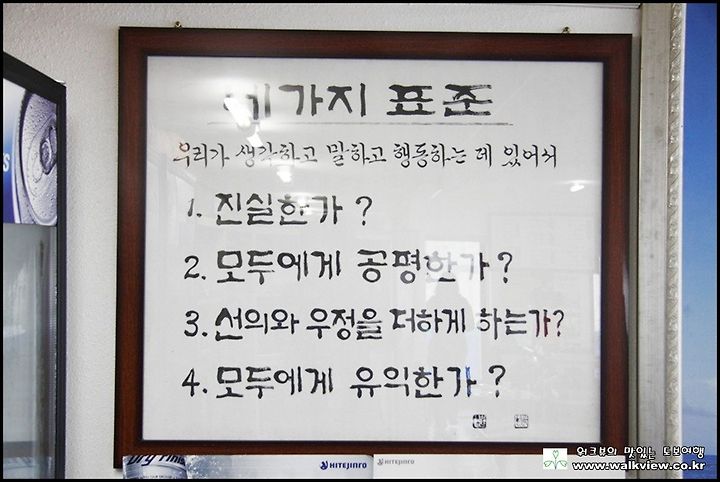 네가지 표준
우리가 생각하고 말하고 행동하는 데 있어서
1. 진실한가?
2. 모두에게 공평한가?
3. 선의와 우정을 더하게 하는가?
4. 모두에게 유익한가?
HITEJINRO HITEJINRO
워크뷰의 맛있는 도보여행
www.walkview.co.kr